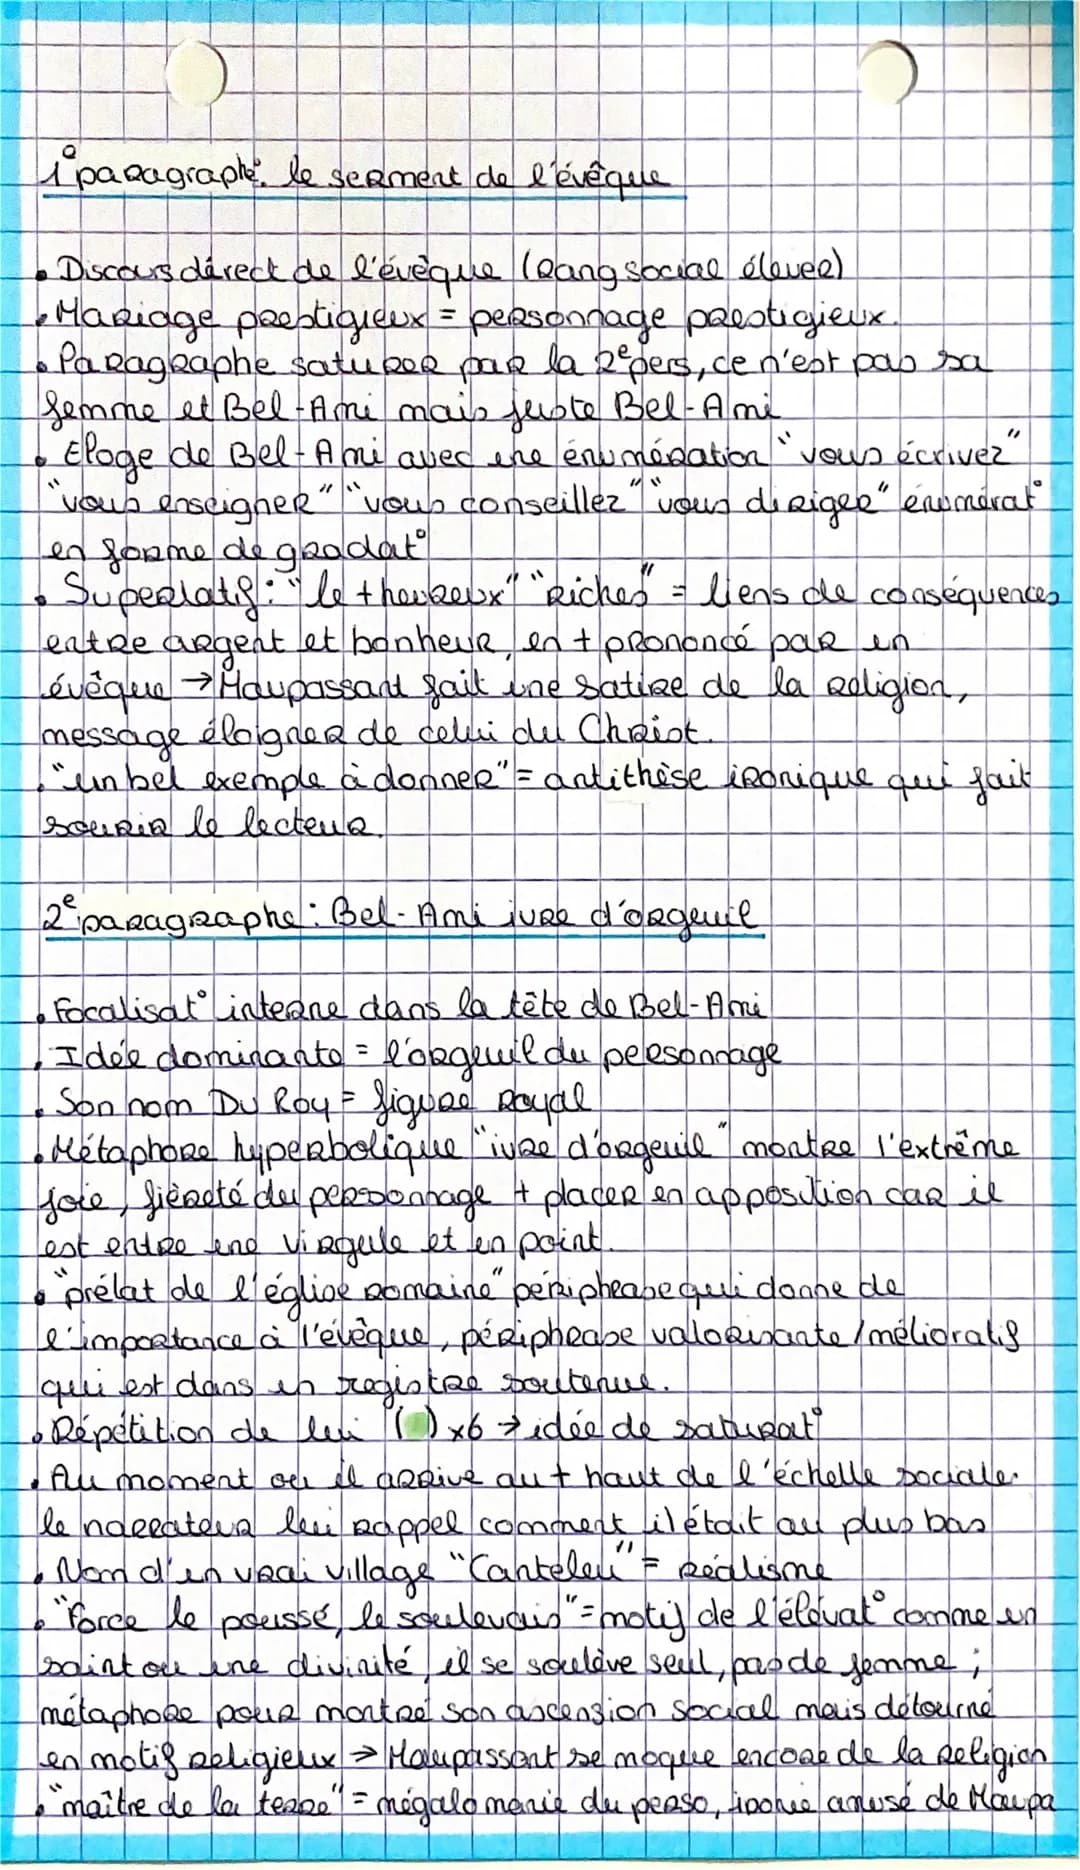 1° paragraphe: le serment de l'évêque
• Discours direct de l'évèque (Rang social élever)
• Mariage prestigieux = personnage prestigieux.
• Paragraphe saturer par la 2e pers, ce n'est pas sa
femme et Bel-Ami mais juste Bel-Ami
• Eloge de Bel-Ami avec une énumération "vous écrivez"
"vous enseigner" "vous conseillez" "vous diriger" énumérat°
en forme de gradat°
• Superlatif: "le + heureux" "riches" = liens de conséquences
entre argent et bonheur, en + prononcé par un
évêque → Maupassant fait une satire de la religion,
message éloigner de celui du Christ.
• "un bel exemple à donner" = antithèse ironique qui fait
sourir le lecteur.
2e paragraphe: Bel-Ami ivre d'orgeuil
• Focalisat° interne dans la tête de Bel-Ami
• Idée dominante = l'orgeuil du personnage
• Son nom Du Roy = figure Royal
• Métaphore hyperbolique "ivre d'orgeuil" montre l'extrême
joie, fièreté du personnage + placer en apposition car il
est entre une virgule et un point.
• "prélat de l'église romaine" périphrase qui donne de
l'importance à l'évèque, périphrase valorisante/mélioratif
qui est dans un registre soutenue.
• Répétition de lui ( ) x6 → idée de saturat°
• Au moment ou il arrive au + haut de l'échelle sociale.
le narrateur lui rappel comment il était au plus bas
• Nom d'un vrai village "Canteleu" = Réalisme
• "Force le poussé, le soulevais" = motif de l'élévat° comme un
saint ou une divinité, il se soulève seul, pas de femme ;
métaphore pour montré son ascension social mais détourné
en motif religieux → Maupassant se moque encore de la religion
• "maître de la terre" = mégalomanie du perso, ironie amusé de Maupa